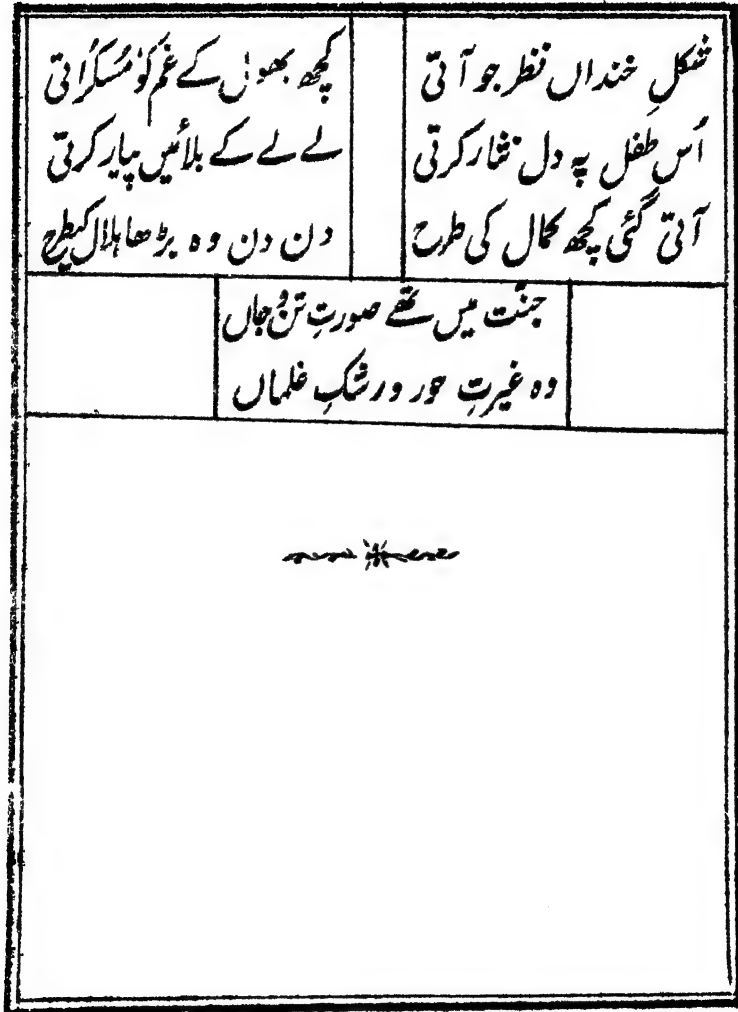 شکلِ خنداں نظر جو آتی
کچھ بھول کے غم کو مُسکُراتی
اُس طفل پہ دل نثار کرتی
لے لے کے بلائیں پیار کرتی
آتی گئی کچھ کمال کی طرح
دن دن وہ بڑھا ہلال کیطرح
جنّت میں تھے صورتِ تن و جاں
وہ غیرتِ حور و رشکِ غلماں